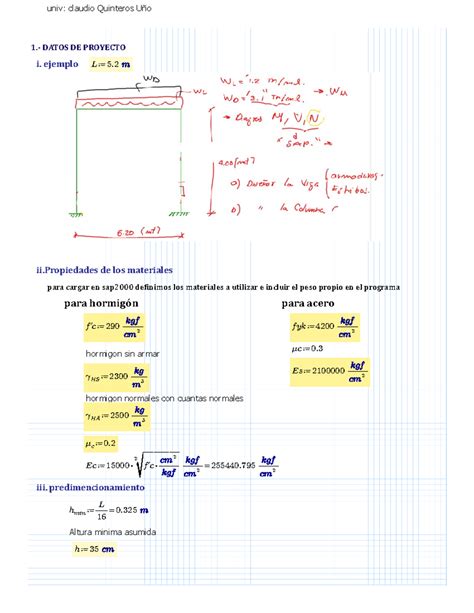 univ: claudio Quinteros Uño
1.- DATOS DE PROYECTO
i. ejemplo L:=5.2 m
WD
WL
WL = 1.2 m/ml.
WD = 2.1 " m/ml. → WU
→ Dagras M, V, N
"Sap."
4.00 (mt)
a) Diseñar la Viga (armaduras. Estribos.
b) " la Columna
6.20 (mt)
ii.Propiedades de los materiales
para cargar en sap2000 definimos los materiales a utilizar e incluir el peso propio en el programa
para hormigón para acero
f'c:=290 kgf/cm² fyk:=4200 kgf/cm²
hormigon sin armar μc:=0.3
γHS:=2300 kg/m³ Es:=2100000 kgf/cm²
hormigon normales con cuantas normales
γHA:=2500 kg/m³
μc:=0.2
Ec:=15000·²√(f'c·cm²/kgf) kgf/cm²=255440.795 kgf/cm²
iii. predimencionamiento
hmin:=L/16=0.325 m
Altura minima asumida
h:=35 cm